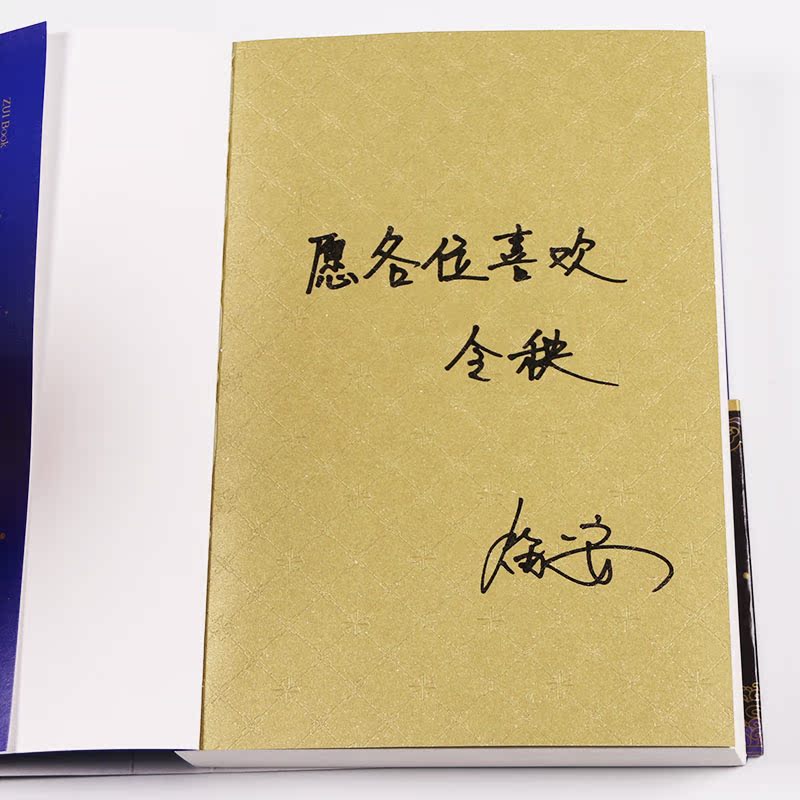 ZUI Book
愿各位喜欢
令秧